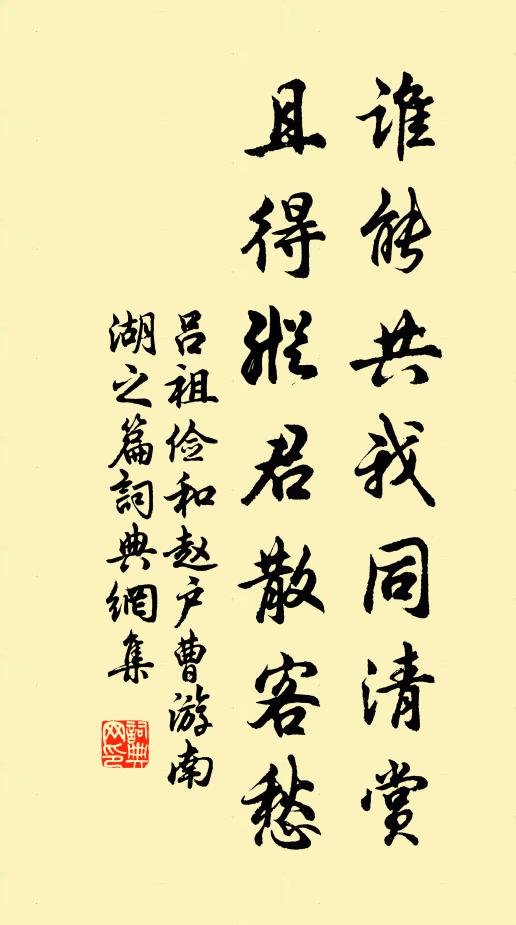 谁能共我同清赏
且得從君散客愁
吕祖俭和赵户曹游南
湖之篇詞典網集
詞典
网印